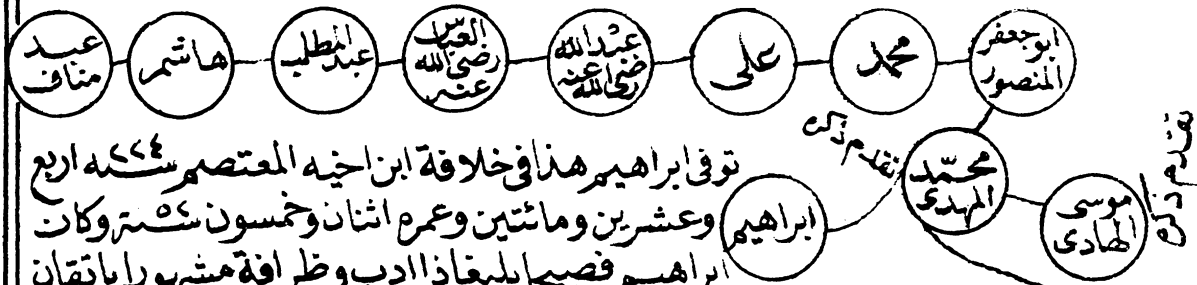 ابو جعفر المنصور
محمد
على
عبد الله رضى الله عنه
العباس رضى الله عنه
عبد المطلب
هاشم
عبد مناف
تقدم ذكره
محمد المهدى
تقدم ذكره
موسى الهادى
ابراهيم
توفى ابراهيم هذا فى خلافة ابن اخيه المعتصم سنه ٢٢٤ اربع
وعشرين ومائتين وعمره اثنان وخمسون سنة ٥٢ وكان
ابراهيم فصيحا بليغا ذا ادب وظرافة مشهورا باتقان